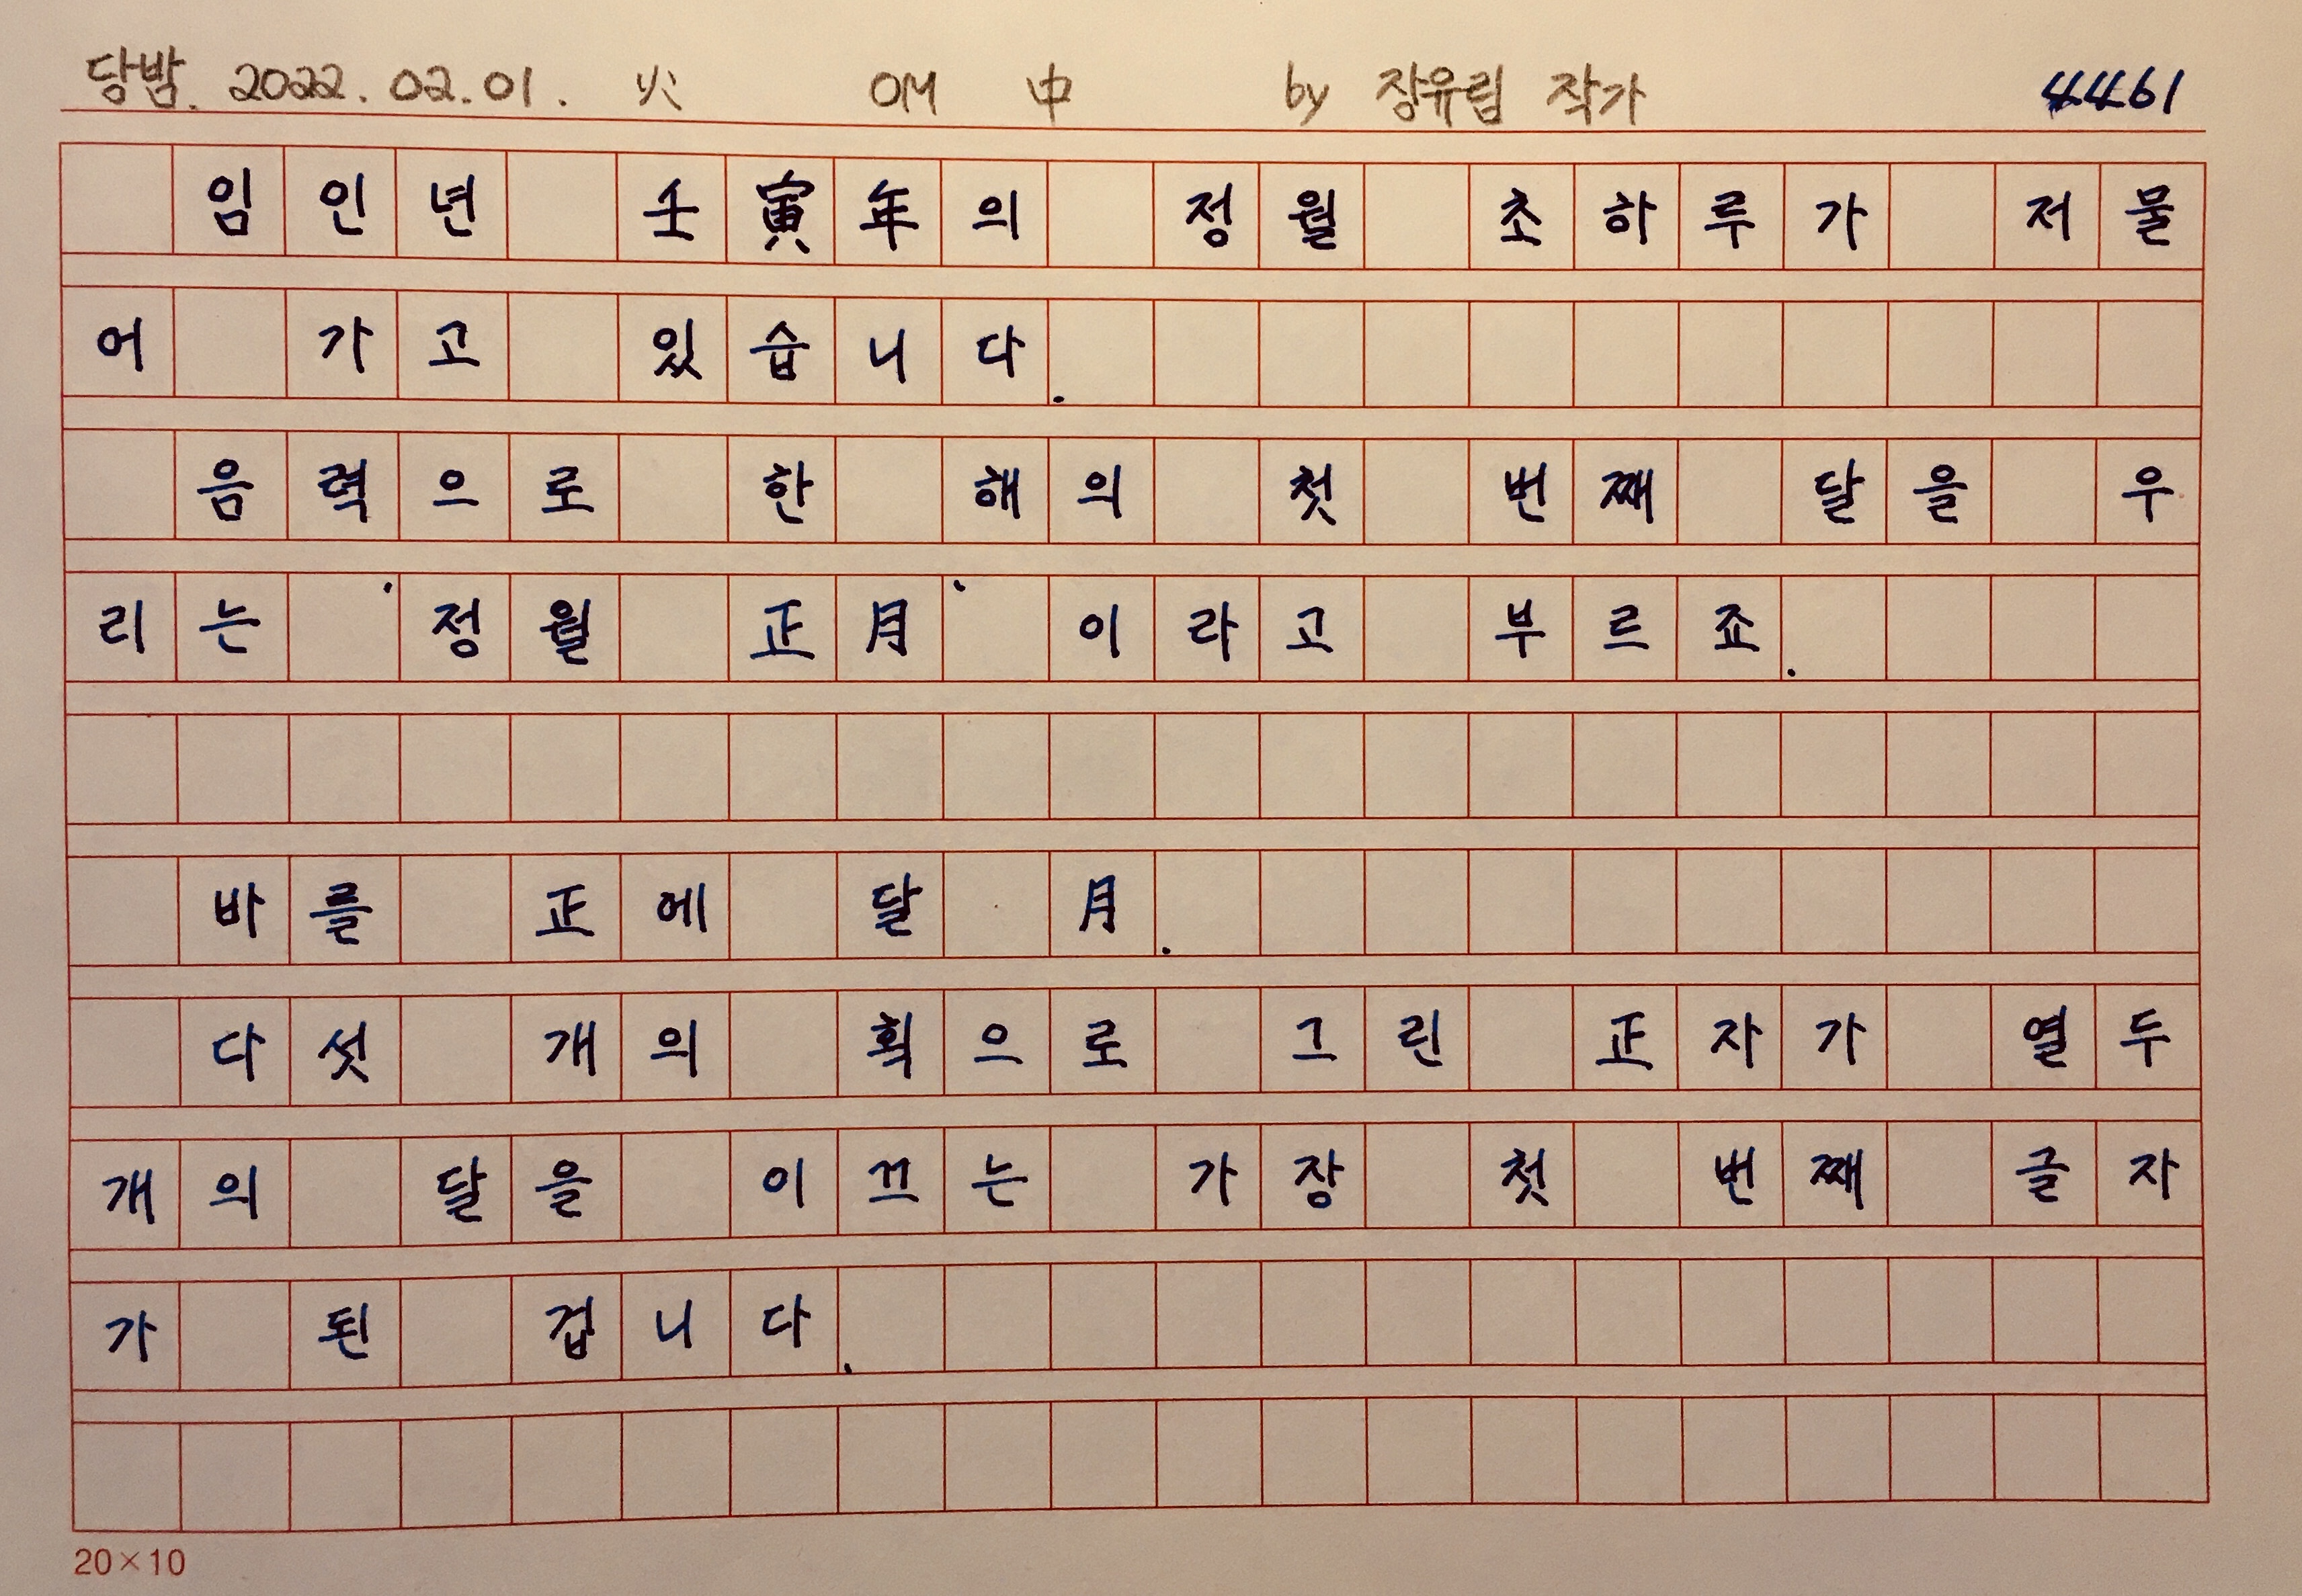 당밤. 2022. 02. 01. 火 OM 中 by 장유림 작가 4461
임인년 壬寅年의 정월 초하루가 저물
어 가고 있습니다.
음력으로 한 해의 첫 번째 달을 우
리는 '정월 正月' 이라고 부르죠.
바를 正에 달 月.
다섯 개의 획으로 그린 正자가 열두
개의 달을 이끄는 가장 첫 번째 글자
가 된 겁니다.
20×10